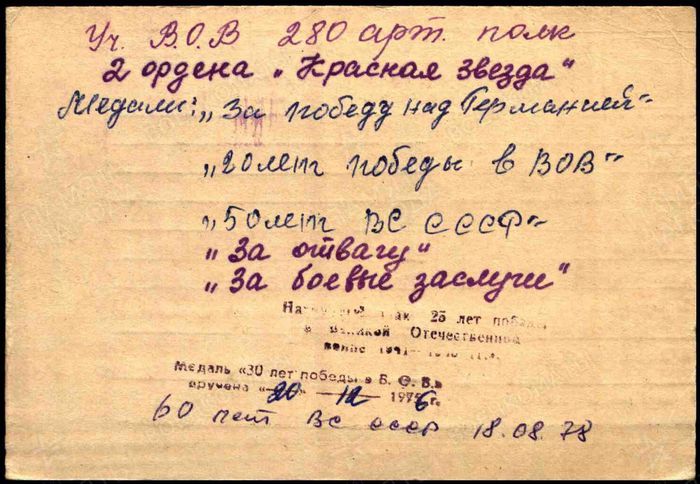 Уч. В.О.В 280 арт. полк
2 ордена „Красная звезда“
Медали: „За победу над Германией“
„20 лет победы в ВОВ“
„50 лет ВС СССР“
„За отвагу“
„За боевые заслуги“
25 лет победы
в Великой Отечественной
войне
Медаль «30 лет победы в В. О. В.»
вручена «20» 12 1976 г.
60 лет ВС СССР 18.08.78